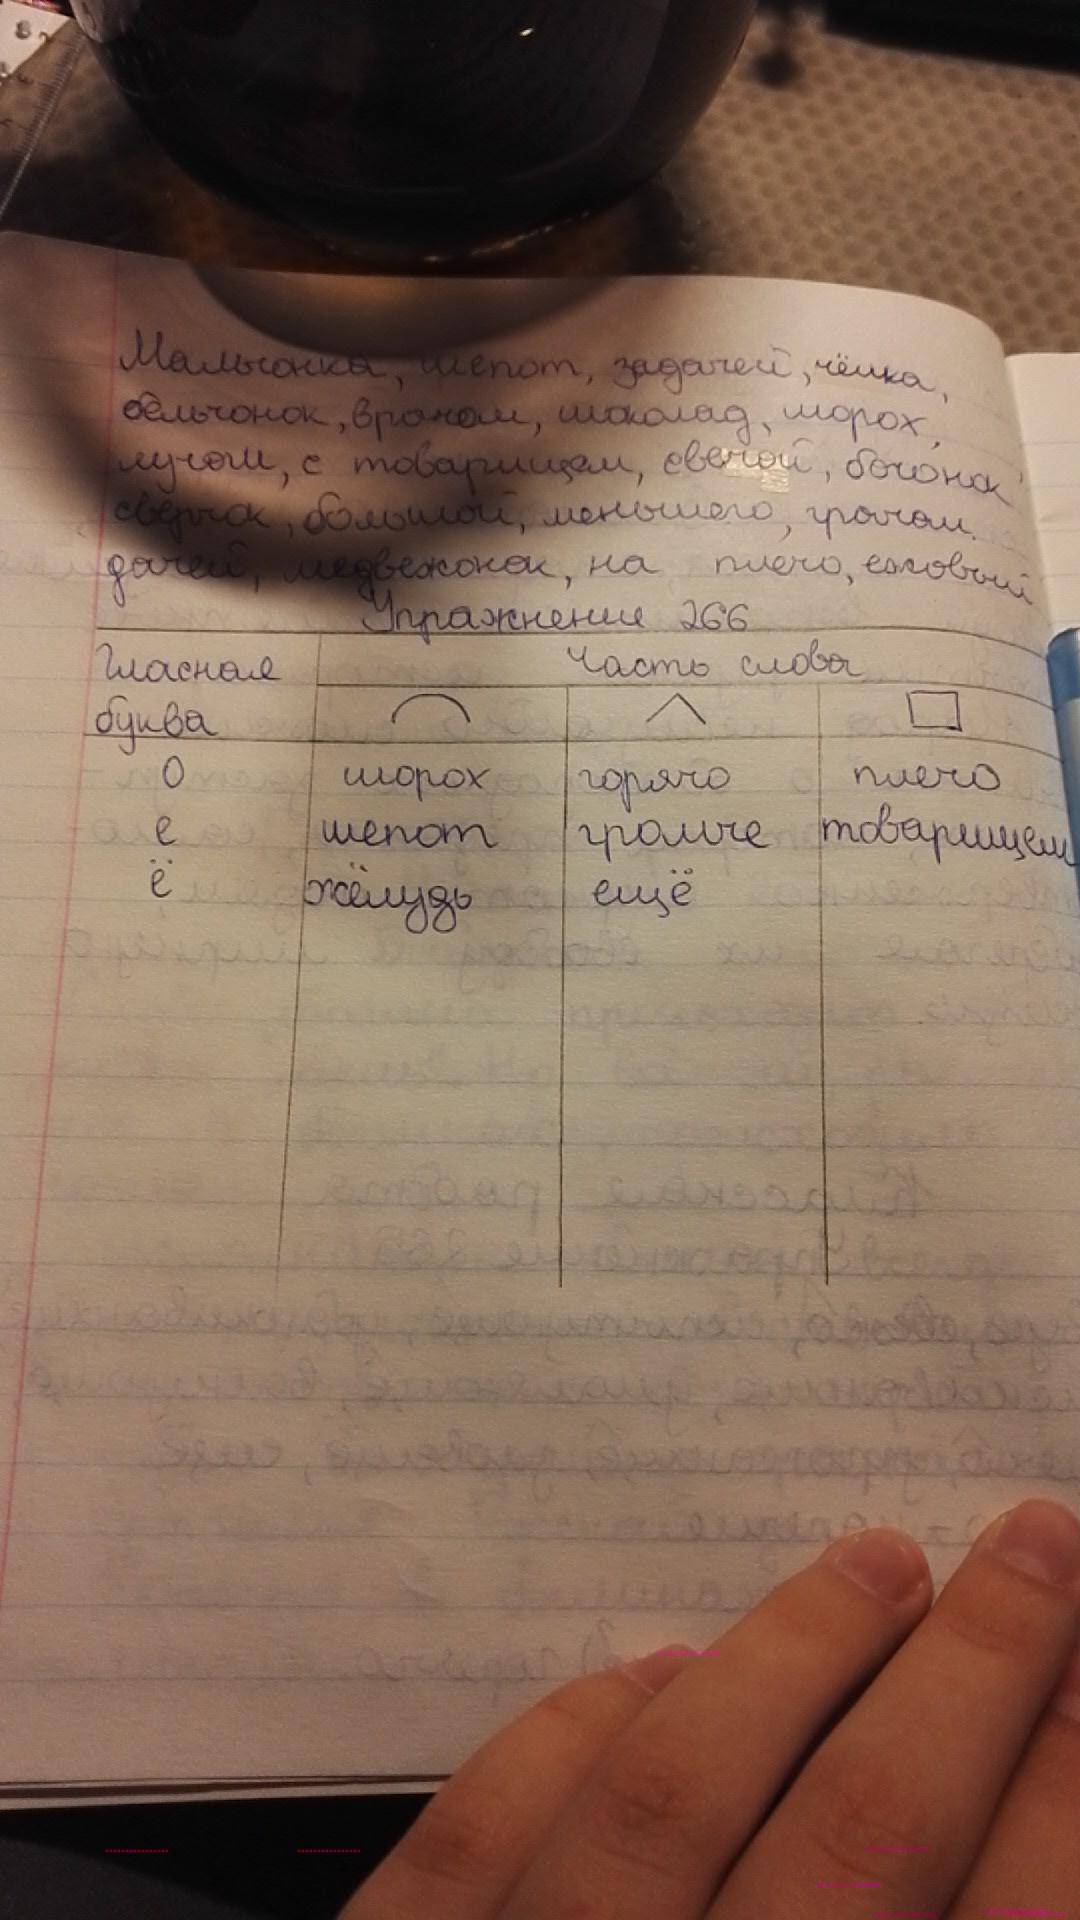 Мальчонка, шепот, задачей, чёлка,
бельчонок, врачом, шоколад, шорох,
лучом, с товарищем, свечой, бочонок
сверчок, большой, меньшего, грачом.
дачей, медвежонок, на плечо, ежовый
Упражнение 266
Гласная Часть слова
буква
о шорох горячо плечо
е шепот громче товарищем
ё жёлудь ещё